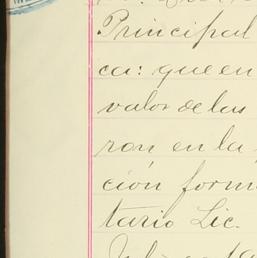 Principal
ca: que en
valor de las
ron en la
ción form
tario Lic.